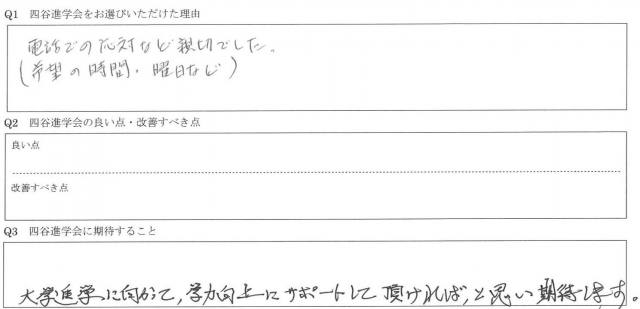 Q1 四谷進学会をお選びいただけた理由
電話での応対など親切でした。
(希望の時間・曜日など)
Q2 四谷進学会の良い点・改善すべき点
良い点
改善すべき点
Q3 四谷進学会に期待すること
大学進学に向かって,学力向上にサポートして頂ければ,と思い期待します。